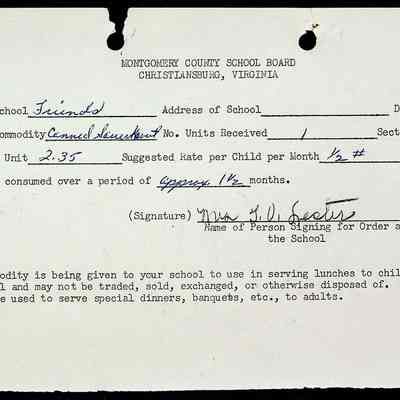 MONTGOMERY COUNTY SCHOOL BOARD
CHRISTIANSBURG, VIRGINIA
School Friends Address of School D
ommodity Canned Sauerkraut No. Units Received 1 Sect
Unit 2.35 Suggested Rate per Child per Month 1/2 #
consumed over a period of approx 1 1/2 months.
(Signature) Mrs T. O. Lester
Name of Person Signing for Order a
the School
odity is being given to your school to use in serving lunches to chil
l and may not be traded, sold, exchanged, or otherwise disposed of.
e used to serve special dinners, banquets, etc., to adults.